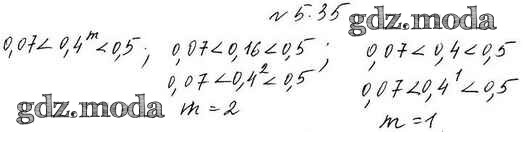 № 5.35
gdz.moda
0,07<0,4^m<0,5; 0,07<0,16<0,5; 0,07<0,4<0,5
0,07<0,4²<0,5 0,07<0,4¹<0,5
gdz.moda m=2 m=1